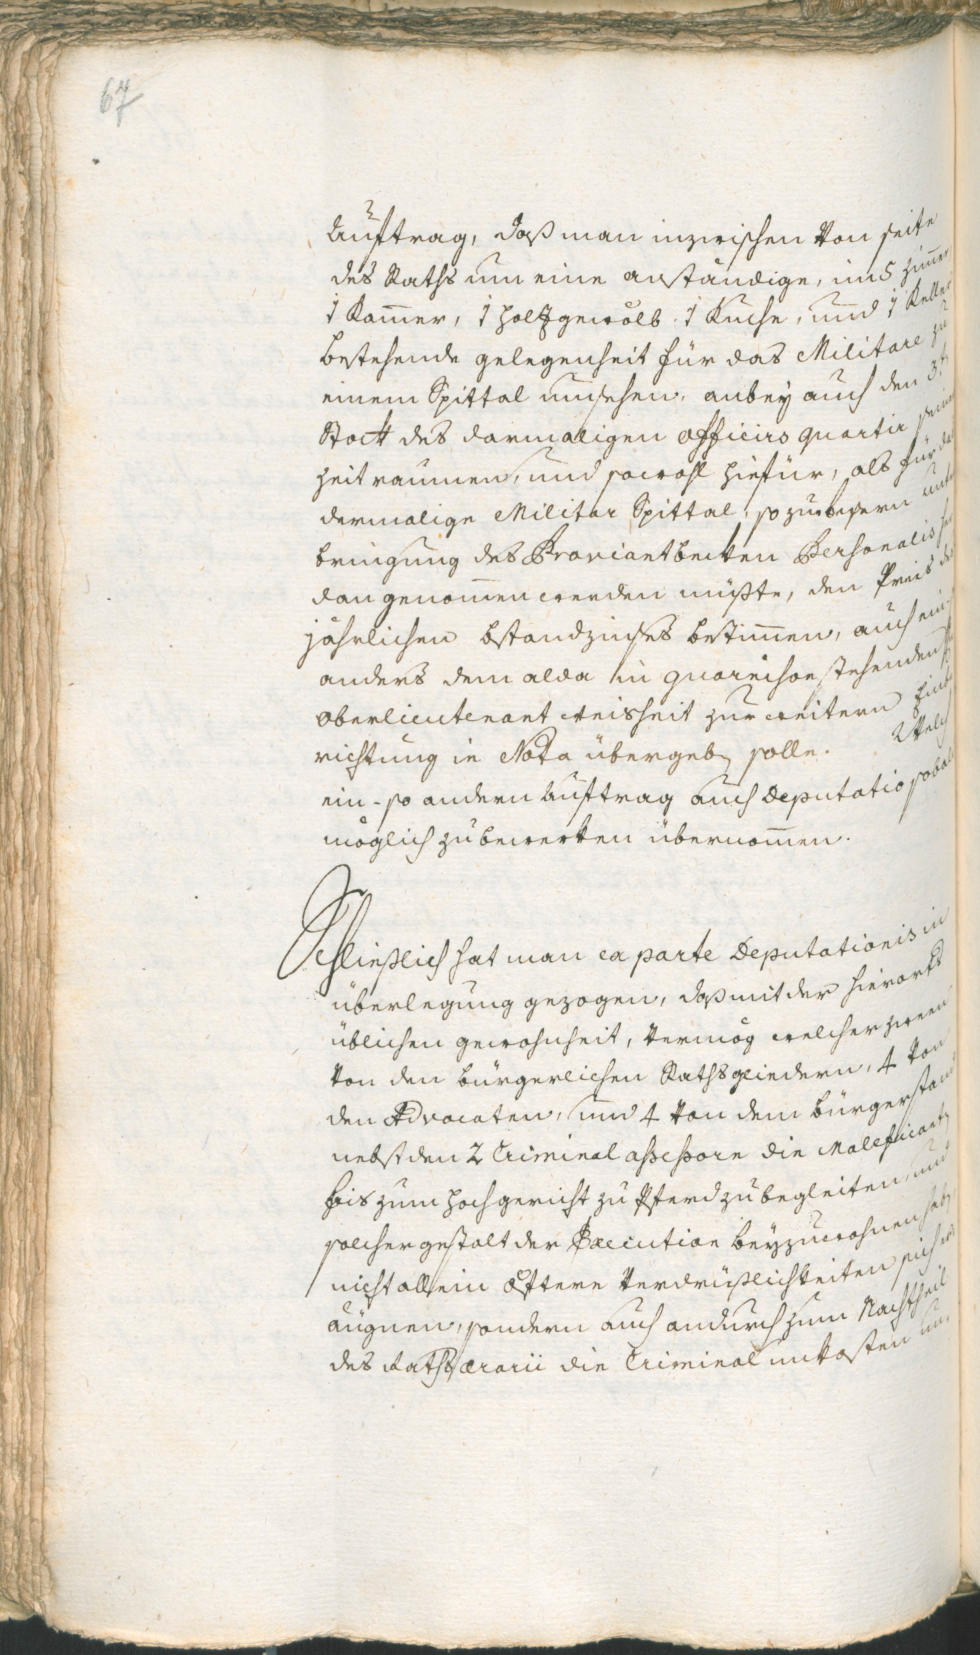 67
Auftrag, daß man inzwischen von seite
des Raths um eine anständige, in 5 Zim̅er
1 Kam̅er, 1 Holtzgewölb 1 Kuche, und 1 Keller
bestehende gelegenheit für das Militare zu
einem Spittal umsehen, anbey auch den 3t.
Stock des darmaligen officirs quartir
zeit raumen, und sowohl hiefür, als für das
dermalige Militar Spittal, so zu besern unter
bringung des Proviantbecken Personalis
dan genom̅en werden müßte, den Preis des
jährlichen bstandzinses bestim̅en, auch ein-
anders dem alda in guarnison stehenden
Oberlieutenant Weisheit zur weitern Einbe
richtung in Nota übergeben solle. Welch
ein- so andern Auftrag auch Deputatio sobald
möglich zu bewerken übernom̅en.
Schließlich hat man ex parte Deputationis in
überlegung gezogen, daß mit der hierorts
üblichen gewohnheit, vermög welcher zween
von den bürgerlichen Rathsgliedern, 4 von
den Advocaten, und 4 von dem bürgerstand
nebst den 2 Criminal assessorn die Maleficanten
bis zum hochgericht zu Pferd zu begleiten, und
solcher gestalt der Execution beyzuwohnen hab
nicht allein öftere verdrüßlichkeiten sich er
äügnen, sondern auch andurch zum Nachtheil
des Raths ærarii die Criminal unkosten um